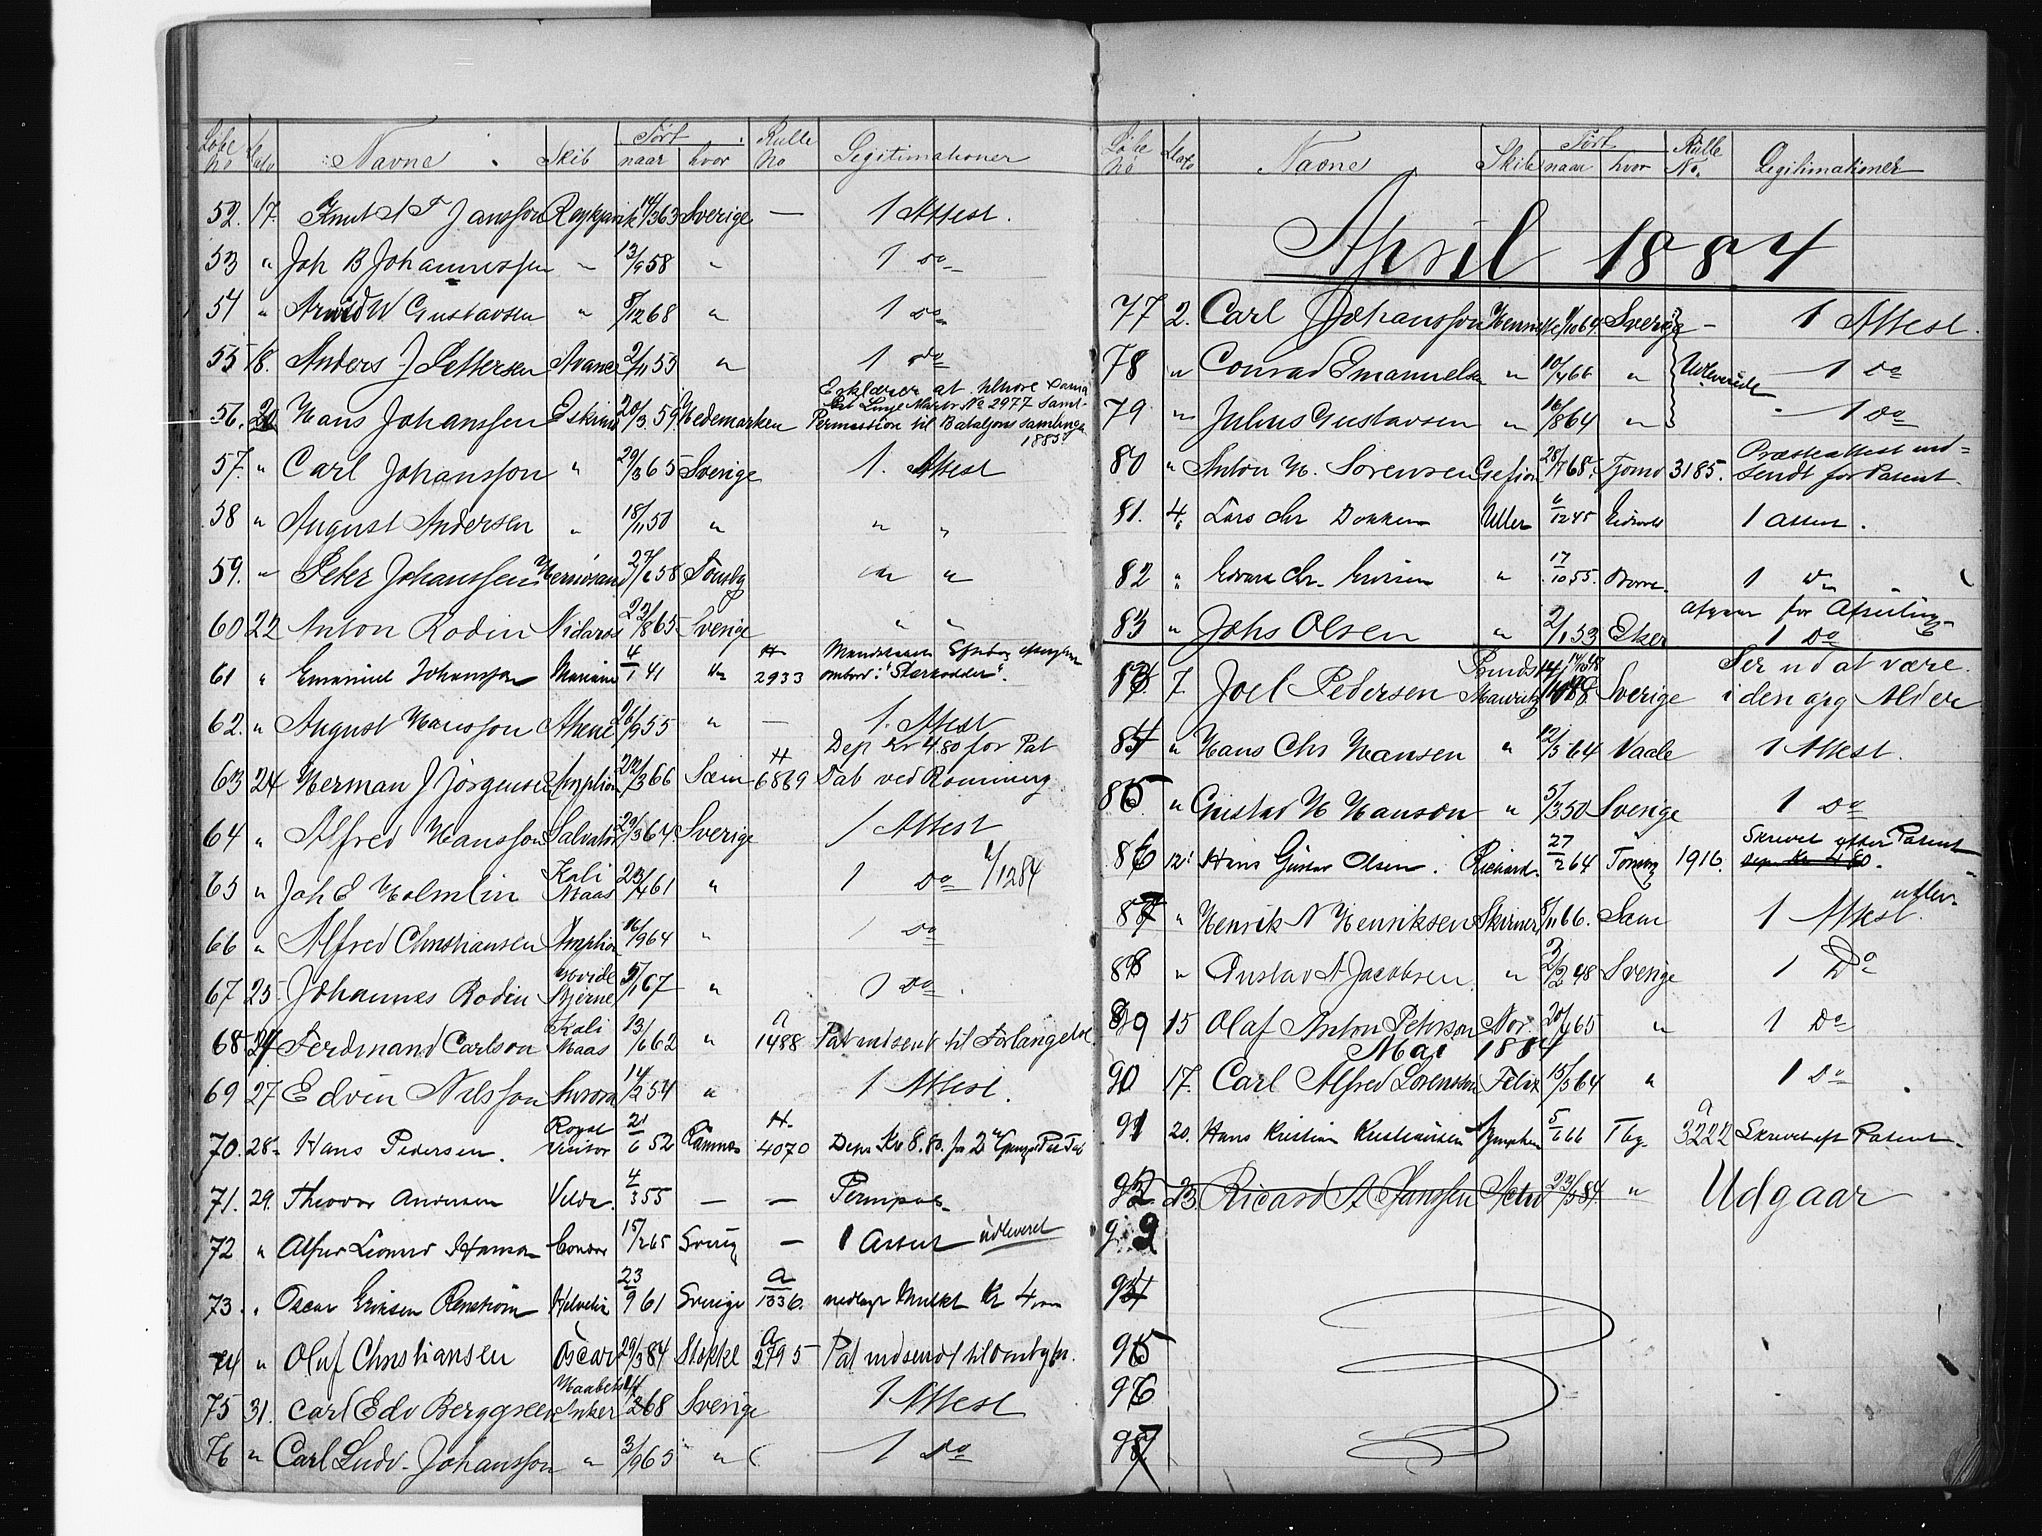 Løbe No Dato Navne Skib Født naar hvor Rulle No Legitimationer
52. 17. Knut A F Jansson Reykjavik 14/3 63 Sverige — 1 Attest.
53 " Joh B Johannessen " 13/9 58 " 1 Do
54 " Arvid W Gustavsen " 8/12 68 " 1 Do
55 18. Anders J Pettersen Avance 2/11 53 " 1 Do
56. 20 Hans Johanssen Eskimo 20/3 59 Hedemarken Erklærer at tilhøre
Linje No 2977 Saml-
Permition til Bataljonssamlingen
1883
57. " Carl Johansson " 29/3 65 Sverige 1. Attest
58 " August Andersen " 18/11 50 " " "
59. " Peter Johanssen Hernösand 27/6 58 Tönsbg " "
60 22 Anton Rodin Nidaros 22/8 65 Sverige " "
61 " Emanuel Johansson Mariane 4/1 41 " H 2933
ombord i "Sterkodder".
62. " August Hansson Athene 26/9 55 " — 1. Attest
63 24 Herman J Jörgensen Amphion 22/3 66 Sæm H 6869 Dep Kr 4.80 for Pat
Tab ved Rømning
64 " Alfred Hansson Salvator 29/3 64 Sverige 1 Attest
65 " Joh E Holmlin Kali Maas 23/4 61 " 1 Do 4/12 84
66 " Alfred Christiansen Amphion 16/9 64 " 1 Do
67 25 Johannes Rodin Hvide Bjerne 5/1 67 " 1 Do
68 27 Ferdinand Carlson Kali Maas 13/6 62 " a 1488 Pat indsendt til Forlangelse
69 27 Edvin Nilsson Aurora 14/2 54 " 1 Attest.
70. 28 Hans Pedersen. Royal Visitor 21/6 52 Ramnes H. 4070 Depr Kr 8.80 for 2 Gange Pat Tab
71. 29. Theodor Andersen Velde. 4/3 55 — — Permpas
72 " Alfred Leonard Condor 15/2 65 Sverig — 1 Attest udleveret
73. " Oscar Eriksen Renström Helvetia 23/9 61 Sverige a 1336. nedlagt Mulkt Kr 4
74 " Oluf Christiansen Oscar 29/3 84 Stokke a 2795 Pat indsendt til ombytn.
75 31. Carl Edv Berggreen Haabets Anker 68 Sverige 1 Attest
76 " Carl Ludv. Johansson " 3/9 65 " 1 Do
Løbe No Dato Navne Skib Født naar hvor Rulle No. Legitimationer
April 1884
77 2. Carl Johansson 9/10 69 Sverige — 1 Attest.
78 " Conrad Emanuelsen " 10/4 66 " Udleverede 1 Do
79 " Julius Gustavsen " 16/8 64 " 1 Do
80 " Anton H. Sorensen Gefion 28/7 65. Tjømø 3185. Præsteattest ind-
sendt for Patent.
81. 4. Lars Chr Dokken Uller 6/12 45 Eidsvold 1 Attest.
82 " Edvard Chr. " 17/10 55. 1 Do
afgaar for
83 " Johs Olsen " 2/1 53 Eker 1 Do
83 7. Joel Pedersen Mauritz Sverige Ser ud at være
i den opg Alder
84 " Hans Chr Hansen " 12/5 64 Vaale 1 Attest.
85. " Gustav H Hanson " 5/3 50 Sverige 1 Do
86 12. Hans Gustav Olsen. Richard. 27/2 64 Tönsbg 1916. Skrevet efter Patent
dep. Kr 4 80.
87 " Henrik N Henriksen Skirner 8/11 66. Sæm 1 Attest. udlev.
88 " Gustav A Jacobsen. " 2/2 48 Sverige 1 Do
89 15 Olaf Anton Peterson Nor. 20/4 65 " 1 Do
Mai 1884
90 17. Carl Alfred Lorensson Felix 15/3 64 " 1 Do
91 20. Hans Kristian Kristiansen Nymphen 5/6 66 Tbg. a 3222 Skrevet eft Patent.
92 23. Ricard A Janssen 23/5 84 " Udgaar
93
94
95
96
97